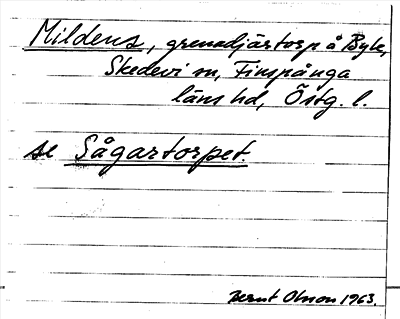 Mildens, grenadjärtorp å Byle,
Skedevi sn, Finspånga
läns hd, Östg. l.
se Sågartorpet.
Bernt Olsson 1963.